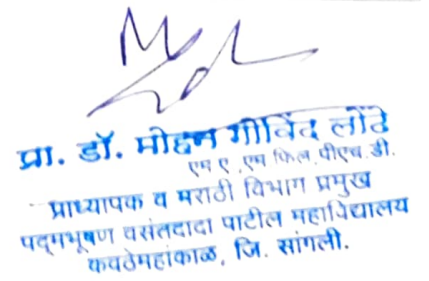 प्रा. डॉ. मोहन गोविंद लोंढे
एम ए , एम फिल, पीएच. डी.
प्राध्यापक व मराठी विभाग प्रमुख
पद्मभूषण वसंतदादा पाटील महाविद्यालय
कवठेमहांकाळ, जि. सांगली.